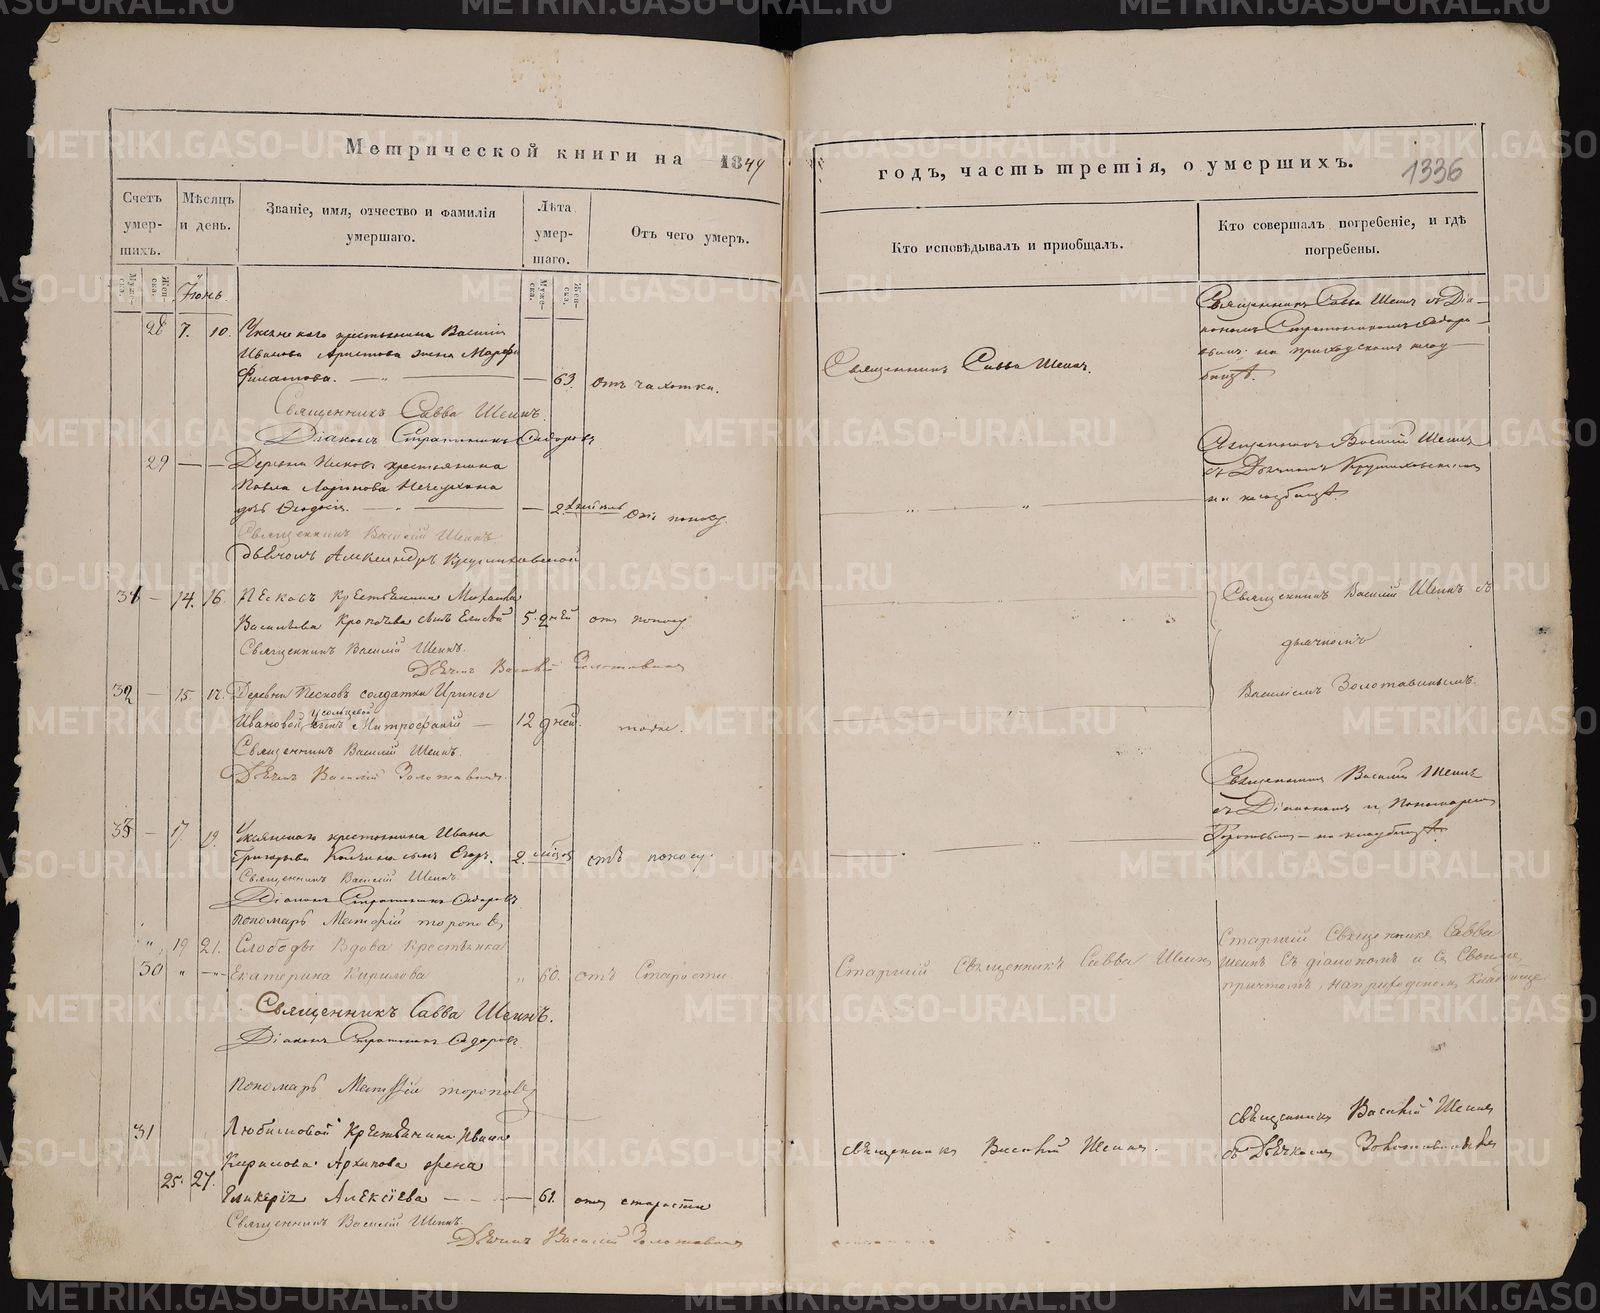 Метрической книги на 1844
годъ, часть третія, о умершихъ.
1336
Счетъ умер-шихъ.
Мѣсяцъ и день.
Званіе, имя, отчество и фамилія умершаго.
Лѣта умер-шаго.
Отъ чего умеръ.
Кто исповѣдывалъ и приобщалъ.
Кто совершалъ погребеніе, и гдѣ погребены.
Муже-ска.
Жен-ска.
Муже-ска.
Жен-ска.
Іюнь.
28 7. 10. крестьянина Василія
Иванова Аристова жена Марфа
Филатова. — 63. отъ чахотки.
Священникъ Савва Шеинъ.
Священникъ Савва Шеинъ съ Діа-
кономъ Стратоникомъ Сидоро-
вымъ на приходскомъ клад-
бищѣ.
Священникъ Савва Шеинъ.
Діаконъ Стратоникъ Сидоровъ
29 — — Деревни Песковъ крестьянина
Павла Ларіонова
дочь Ѳеодосія. — 2 отъ поносу.
Священникъ Василій Шеинъ
на кладбищѣ.
Священникъ Василій Шеинъ
Дьячокъ Александръ
31 — 14. 16. Песковъ крестьянина Михаила
Васильева сынъ Елисей 5. дней отъ поносу
Священникъ Василій Шеинъ.
Дьячекъ Василій Золотавинъ
Священникъ Василій Шеинъ съ
дьячкомъ
Василіемъ Золотавинымъ.
32 — 15. 17. Деревни Песковъ солдатки Ирины
Ивановой, Усольцевой сынъ Митрофаній — 12 дней. тоже.
Священникъ Василій Шеинъ.
Дьячекъ Василій Золотавинъ.
33 — 17 19. крестьянина Ивана
Григорьева сынъ Егоръ. 2. отъ поносу.
Священникъ Василій Шеинъ
съ Діакономъ и Пономаремъ
Тороповымъ — на кладбищѣ.
Священникъ Василій Шеинъ.
Діаконъ Стратоникъ Сидоровъ
пономарь Матфій тороповъ
" 19 21. Слободы Вдова Крестьянка
30 " —"— Екатерина Кирилова " 60. отъ Старости
Старшій Священникъ Савва Шеинъ
Старшій Священникъ Савва
Шеинъ Съ діакономъ и Со Своимъ
причтомъ, на приходскомъ Кладбище
Священникъ Савва Шеинъ.
Діаконъ Стратоникъ Сидоровъ
Пономарь Матфій тороповъ
31 Любимовой Крестьянина Ивана
Кирилова Архипова жена
25. 27.
Гликерія Алексіева — 61. отъ старости
Священникъ Василій Шеинъ.
священникъ Василій Шеинъ
съ Дьячкомъ
Священникъ Василій Шеинъ
Дьячекъ Василій Золотавинъ
METRIKI.GASO-URAL.RU